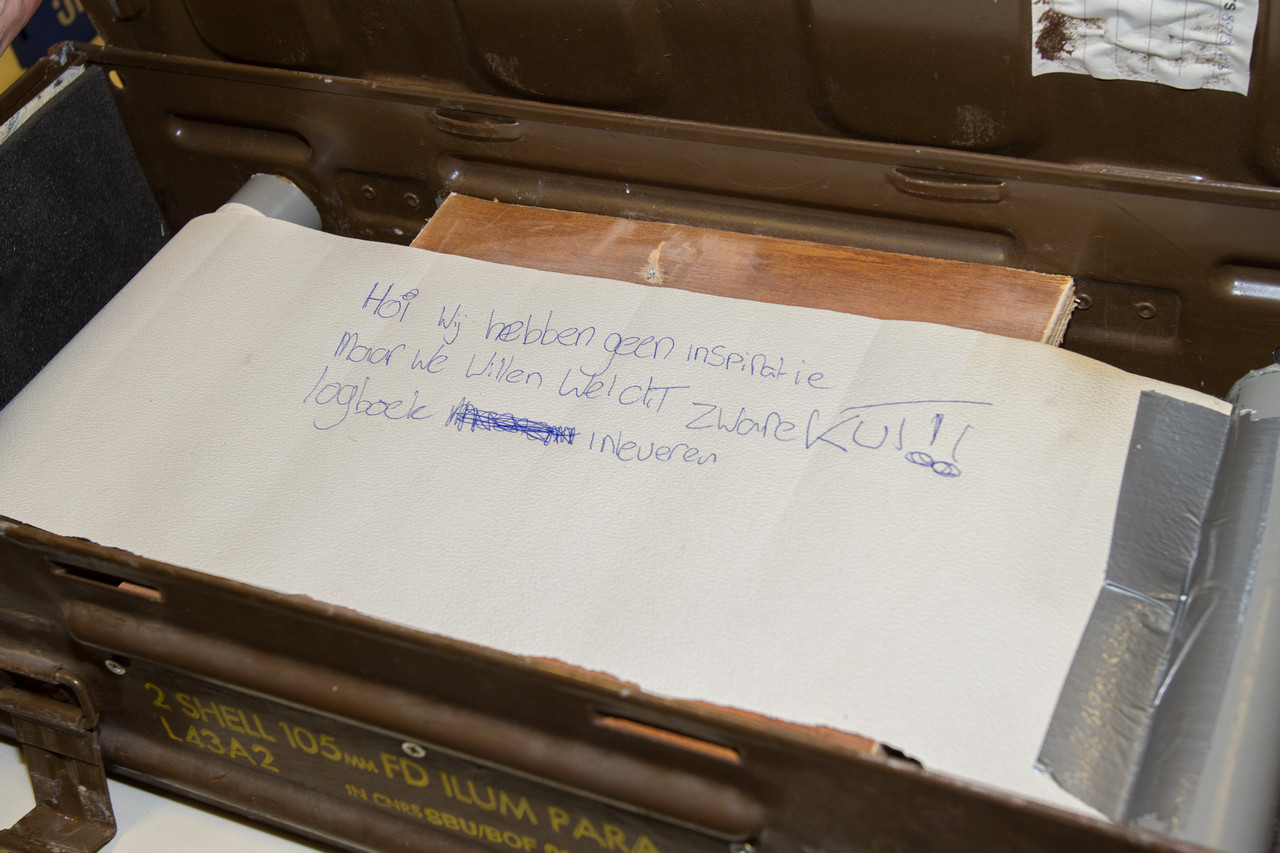 Hoi wij hebben geen inspiratie
Maar we willen wel dit zware KUT!!
logboek inleveren
2 SHELL 105MM FD ILUM PARA
L43A2
IN CNRS SBU/BOF